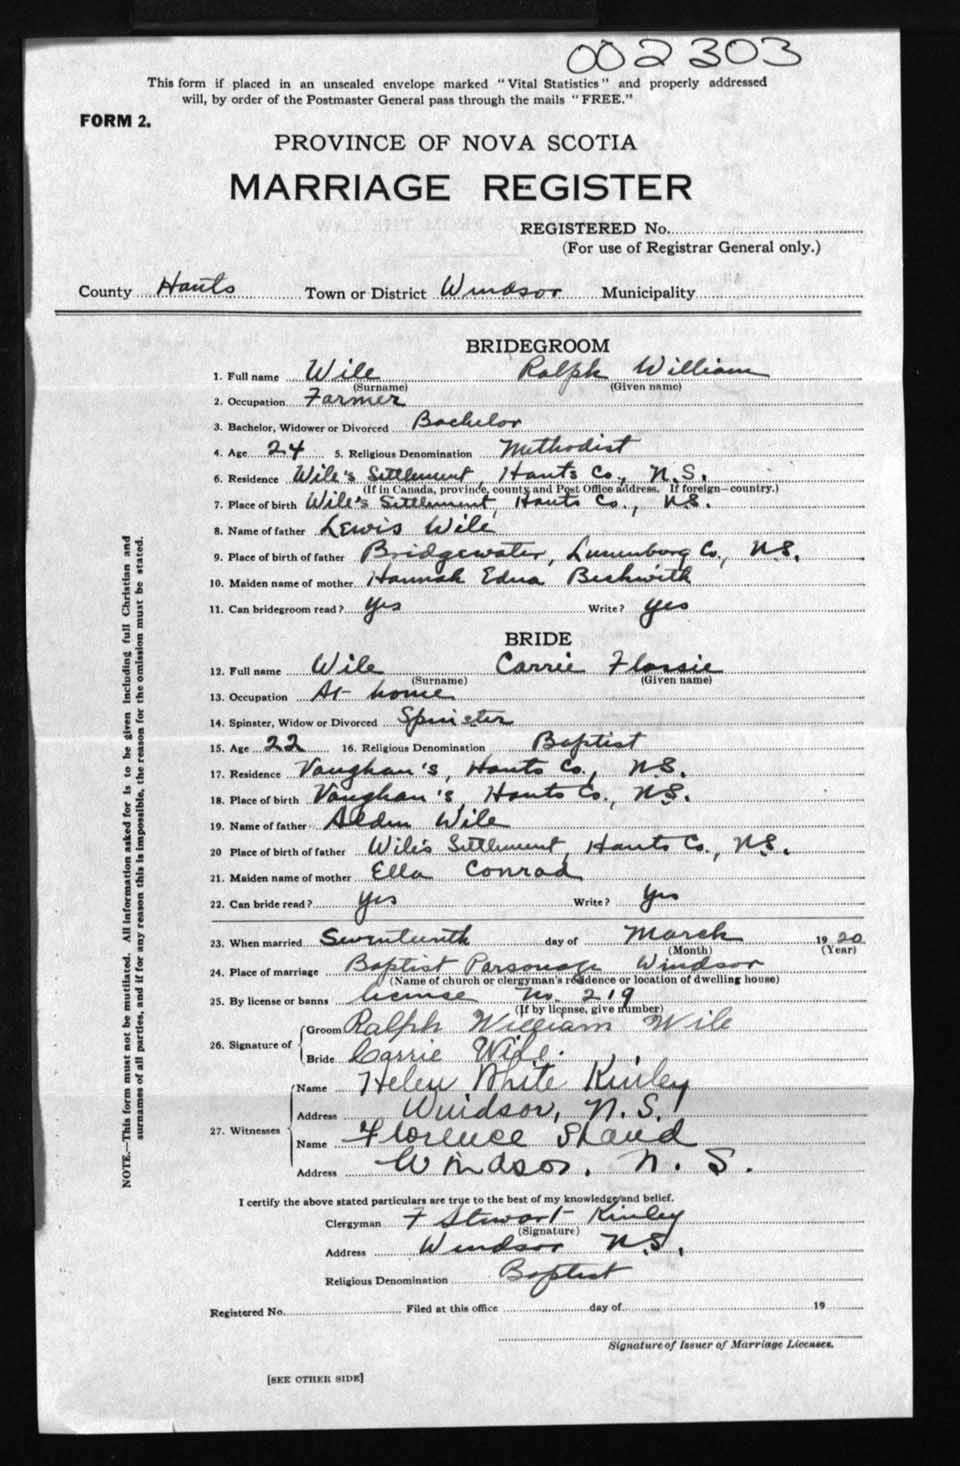 002303
This form if placed in an unsealed envelope marked "Vital Statistics" and properly addressed
will, by order of the Postmaster General pass through the mails "FREE."
FORM 2.
PROVINCE OF NOVA SCOTIA
MARRIAGE REGISTER
REGISTERED No.
(For use of Registrar General only.)
County Hants Town or District Windsor Municipality
BRIDEGROOM
1. Full name Wile Ralph William
(Surname) (Given name)
2. Occupation Farmer
3. Bachelor, Widower or Divorced Bachelor
4. Age 24 5. Religious Denomination Methodist
6. Residence Wile's Settlement, Hants Co., N.S.
(If in Canada, province, county and Post Office address. If foreign—country.)
7. Place of birth Wile's Settlement, Hants Co., N.S.
8. Name of father Lewis Wile
9. Place of birth of father Bridgewater, Lunenburg Co., N.S.
10. Maiden name of mother Hannah Edna Beckwith
11. Can bridegroom read? Yes Write? Yes
BRIDE
12. Full name Wile Carrie Flossie
(Surname) (Given name)
13. Occupation At home
14. Spinster, Widow or Divorced Spinster
15. Age 22 16. Religious Denomination Baptist
17. Residence Vaughan's, Hants Co., N.S.
18. Place of birth Vaughan's, Hants Co., N.S.
19. Name of father Alden Wile
20 Place of birth of father Wile's Settlement, Hants Co., N.S.
21. Maiden name of mother Ella Conrad
22. Can bride read? Yes Write? Yes
23. When married Seventeenth day of March 1920
(Month) (Year)
24. Place of marriage Baptist Parsonage Windsor
(Name of church or clergyman's residence or location of dwelling house)
25. By license or banns license No. 219
(If by license, give number)
26. Signature of
Groom Ralph William Wile
Bride Carrie Wile.
27. Witnesses
Name Helen White Kinley
Address Windsor, N.S.
Name Florence Shand
Address Windsor, N.S.
I certify the above stated particulars are true to the best of my knowledge and belief.
Clergyman F Stewart Kinley
(Signature)
Address Windsor N.S.
Religious Denomination Baptist
Registered No. Filed at this office day of 19
Signature of Issuer of Marriage Licenses.
[SEE OTHER SIDE]
NOTE.—This form must not be mutilated. All information asked for is to be given including full Christian and
surnames of all parties, and if for any reason this is impossible, the reason for the omission must be stated.